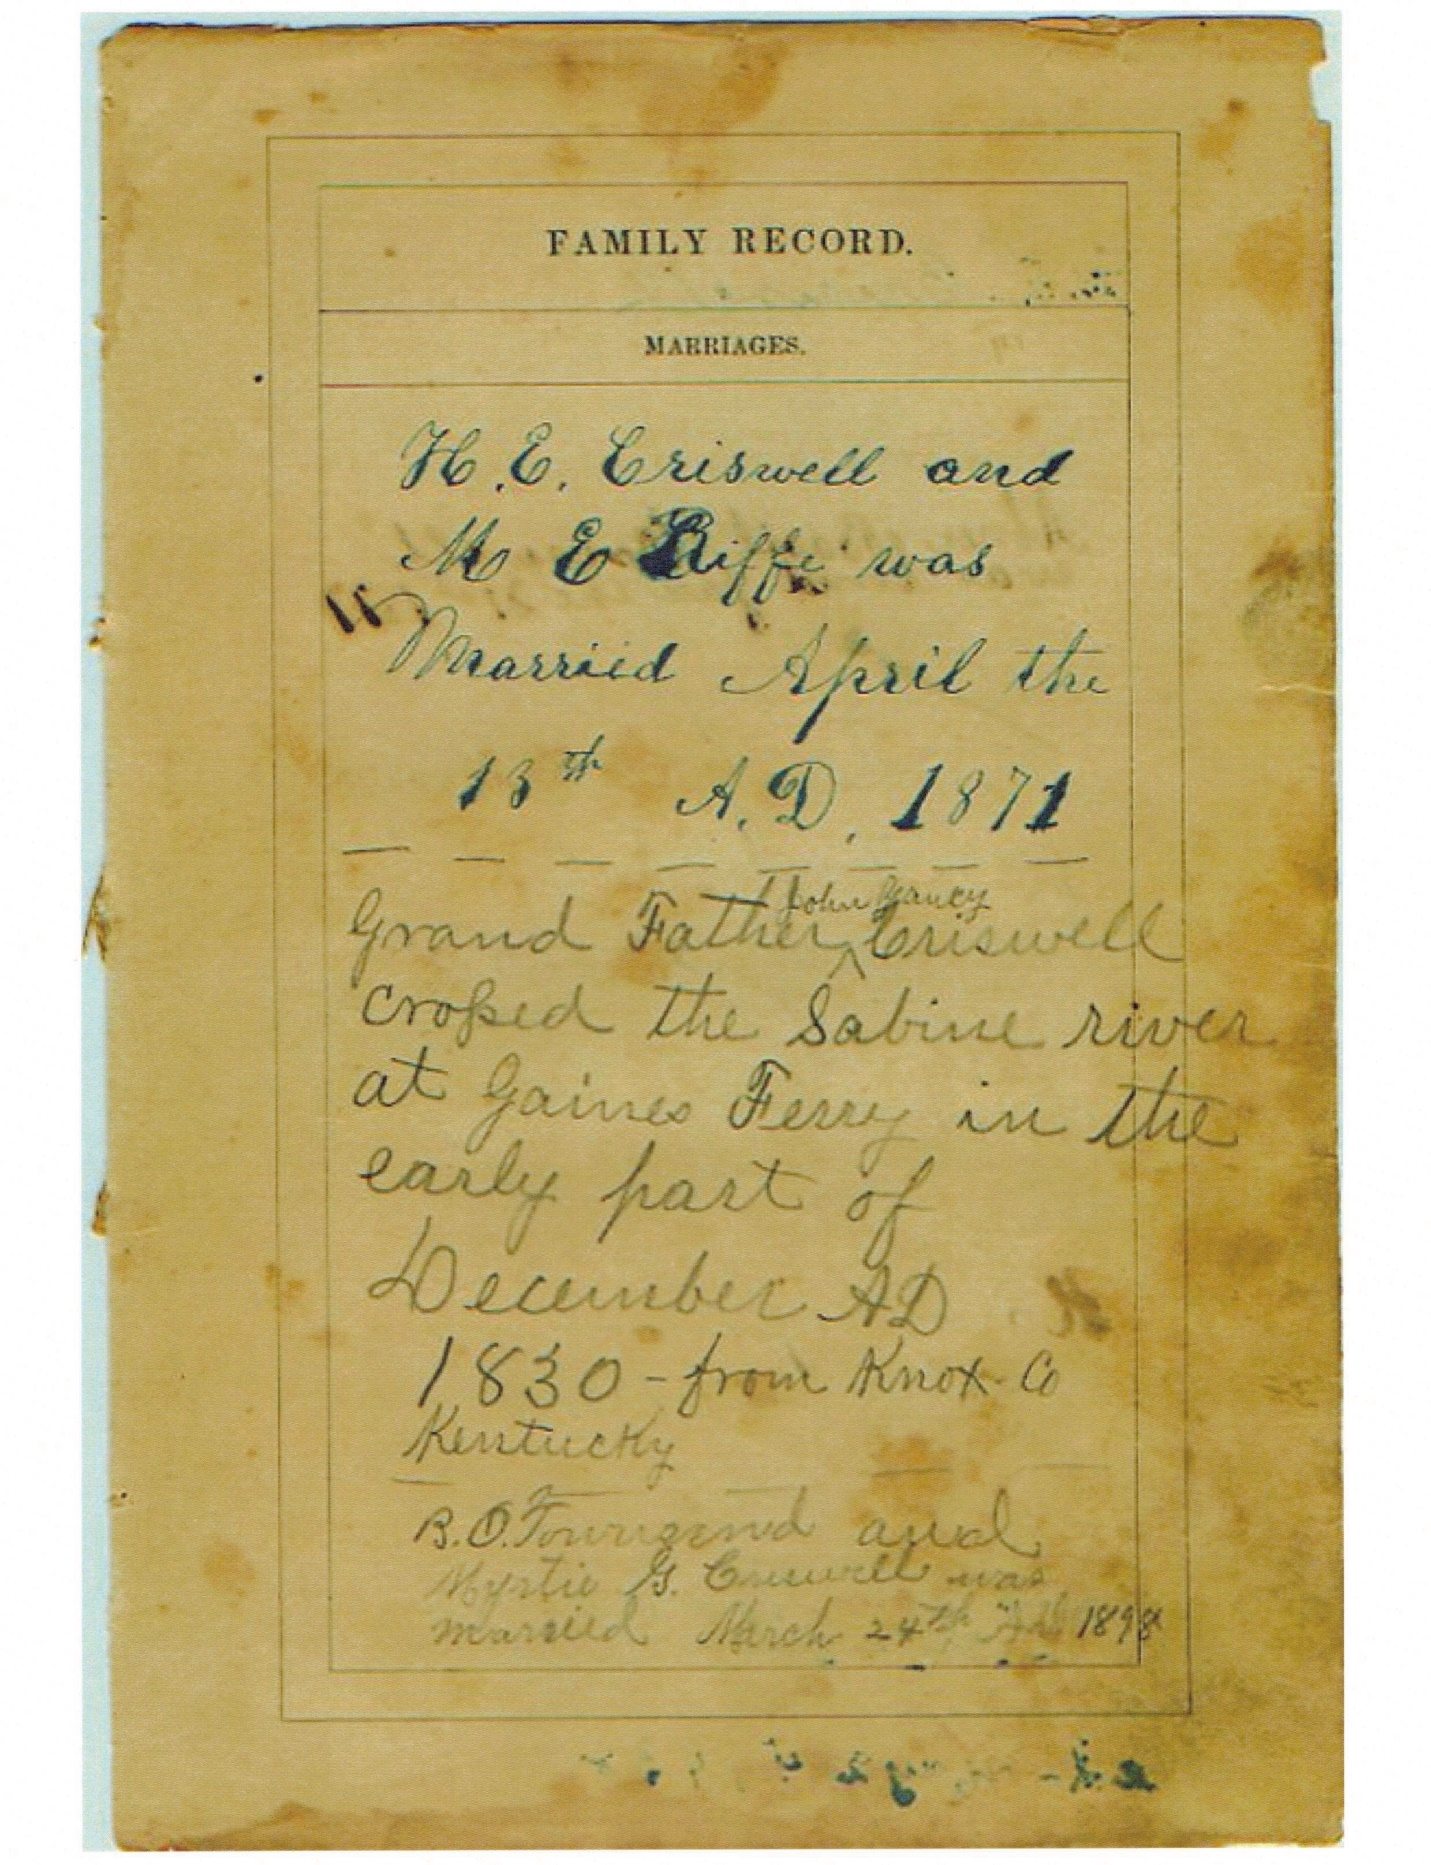 FAMILY RECORD.
MARRIAGES.
H. E. Criswell and
M E Riffe was
Married April the
13th A. D. 1871
John Yancy
Grand Father ^ Criswell
croſsed the Sabine river
at Gaines Ferry in the
early part of
December AD
1830 - from Knox Co
Kentucky
B. O. Townsend and
Myrtie G. Criswell was
married March 24th AD 1898